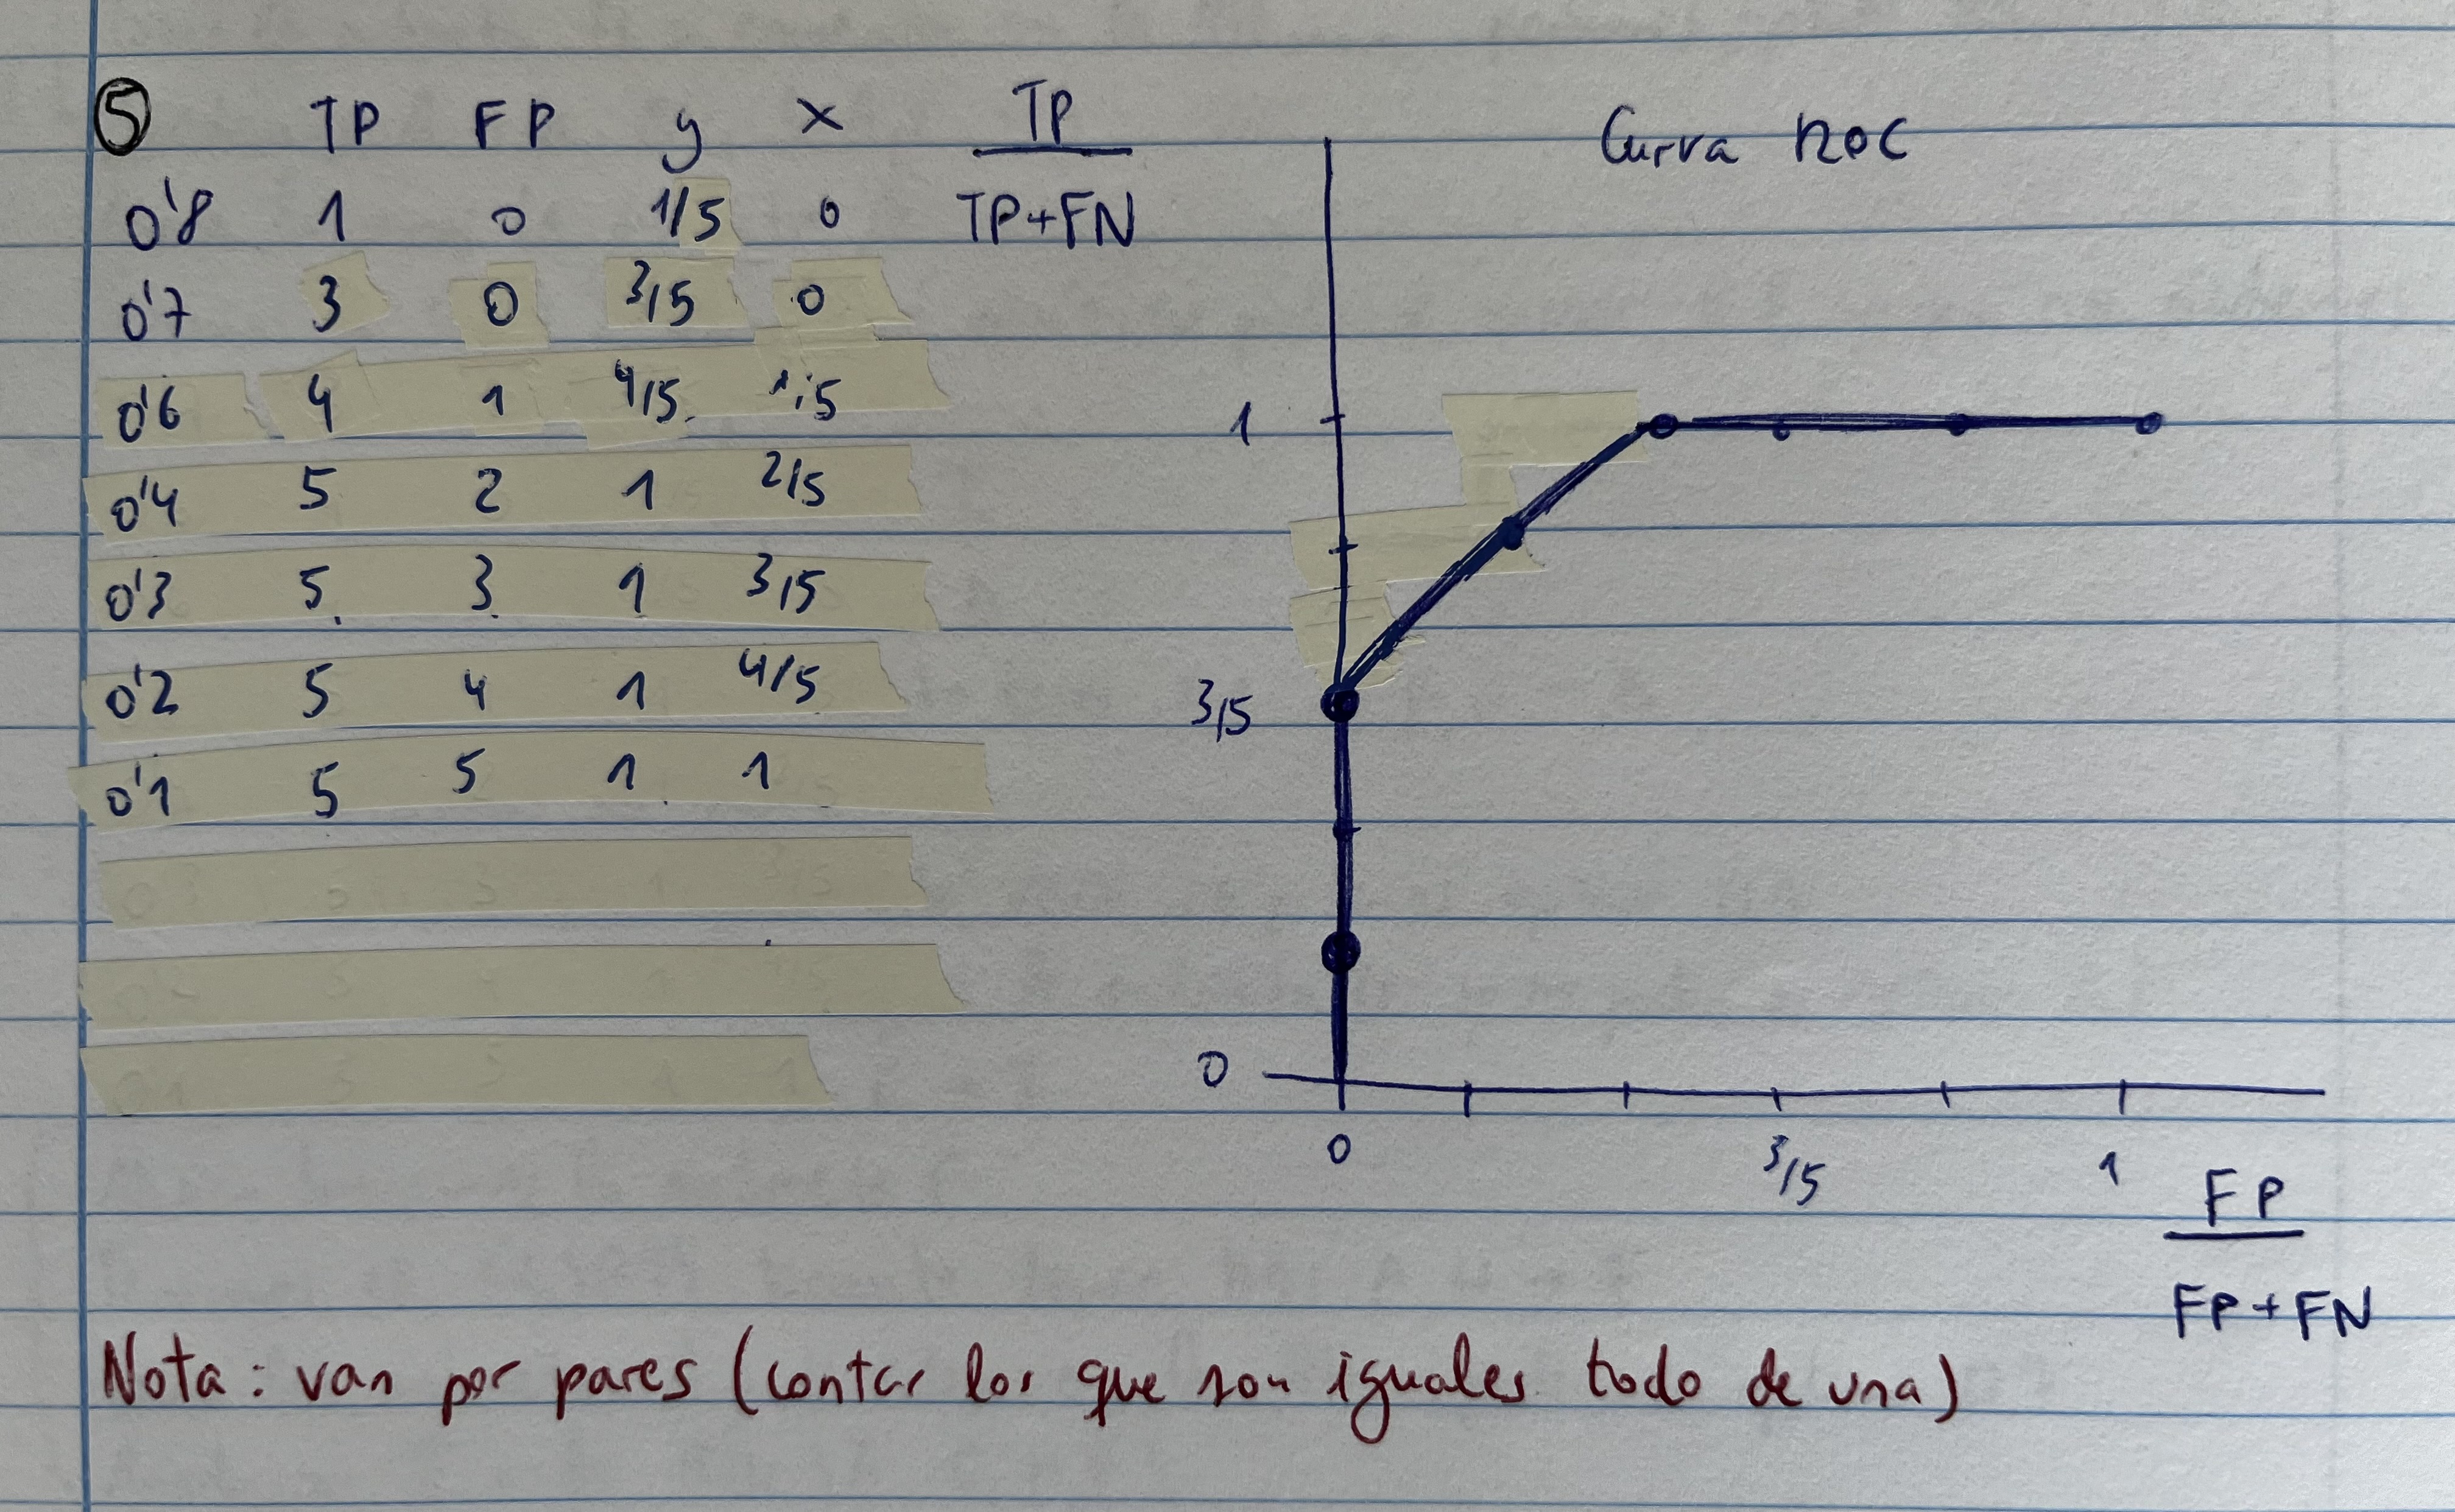 5 TP FP y x
0'8 1 0 1/5 0
0'7 3 0 3/5 0
0'6 4 1 4/5 1/5
0'4 5 2 1 2/5
0'3 5 3 1 3/5
0'2 5 4 1 4/5
0'1 5 5 1 1
TP
TP+FN
Curva ROC
1
3/5
0
0 3/5 1
FP
FP+FN
Nota: van por pares (contar los que son iguales todo de una)